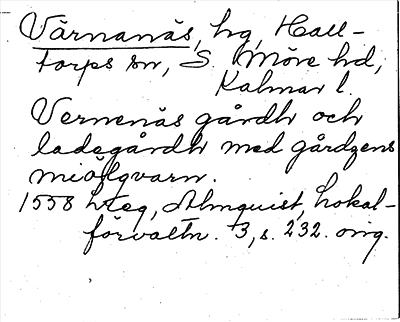 Värnanäs, hg, Hall-
torps sn, S. Möre hd,
Kalmar l.
Vernenäs gårdh och
ladegårdh med gårdzens
miölqvarn.
1558 hteg, Almquist, Lokal-
förvaltn. 3, s. 232. orig.